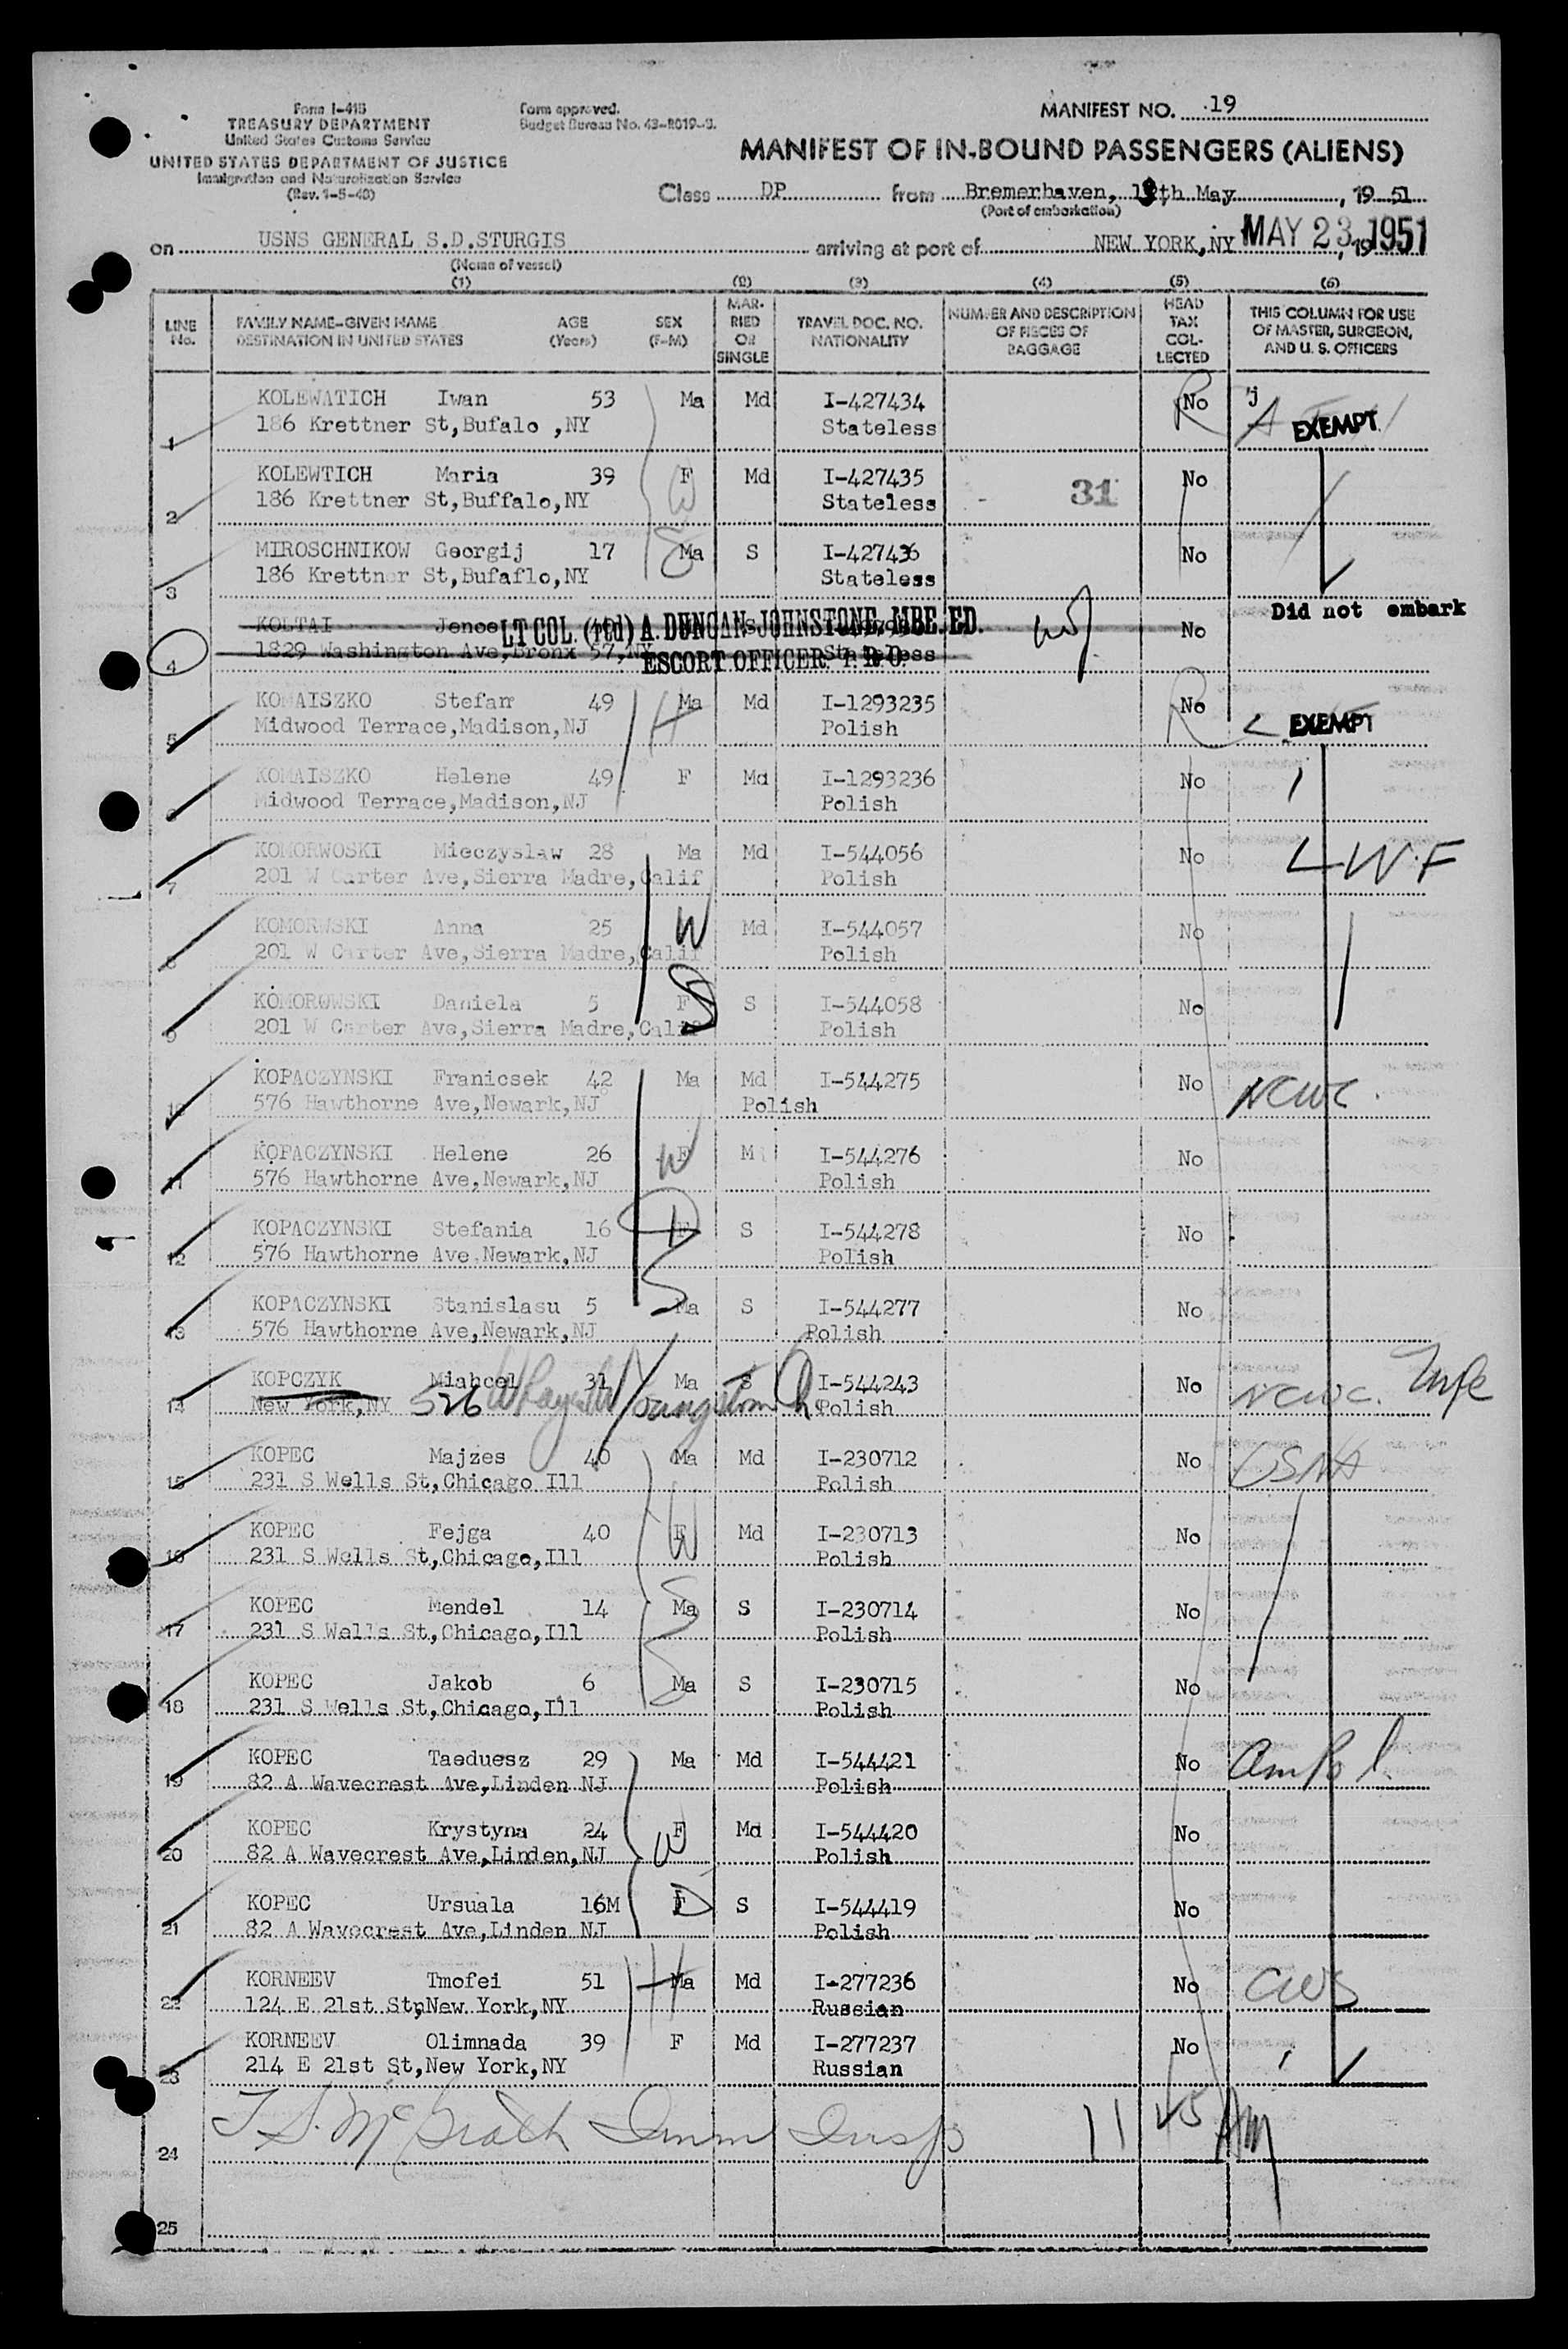 Form I-415
TREASURY DEPARTMENT
United States Customs Service
UNITED STATES DEPARTMENT OF JUSTICE
Immigration and Naturalization Service
(Rev. 1-5-48)
Form approved.
Budget Bureau No. 43-R019-3.
MANIFEST NO. 19
MANIFEST OF IN-BOUND PASSENGERS (ALIENS)
Class DP from Bremerhaven, 13th May, 19 51
(Port of embarkation)
on USNS GENERAL S.D.STURGIS arriving at port of NEW YORK,NY MAY 23, 19 1951
(Name of vessel)
(1) (2) (3) (4) (5) (6)
LINE No. FAMILY NAME-GIVEN NAME DESTINATION IN UNITED STATES AGE (Years) SEX (F-M) MARRIED OR SINGLE TRAVEL DOC. NO. NATIONALITY NUMBER AND DESCRIPTION OF PIECES OF BAGGAGE HEAD TAX COLLECTED THIS COLUMN FOR USE OF MASTER, SURGEON, AND U. S. OFFICERS
KOLEWATICH Iwan 53 Ma Md I-427434 No EXEMPT
1 186 Krettner St,Bufalo ,NY Stateless
KOLEWTICH Maria 39 F Md I-427435 31 No
2 186 Krettner St,Buffalo,NY Stateless
MIROSCHNIKOW Georgij 17 Ma S I-427436 No
3 186 Krettner St,Bufaflo,NY Stateless
Did not embark
KOLTAI Jenoe LT COL. (rtd) A. DUNCAN-JOHNSTONE, MBE. ED. No
4 1829 Washington Ave,Bronx 57,NY ESCORT OFFICER. I. R. O. Stateless
KOMAISZKO Stefan 49 Ma Md I-1293235 No EXEMPT
5 Midwood Terrace,Madison,NJ Polish
KOMAISZKO Helene 49 F Md I-1293236 No
6 Midwood Terrace,Madison,NJ Polish
KOMORWOSKI Mieczyslaw 28 Ma Md I-544056 No LWF
7 201 W Carter Ave,Sierra Madre,Calif Polish
KOMORWSKI Anna 25 W Md I-544057 No
8 201 W Carter Ave,Sierra Madre,Calif Polish
KOMOROWSKI Daniela 5 F S I-544058 No
9 201 W Carter Ave,Sierra Madre,Calif Polish
KOPACZYNSKI Franicsek 42 Ma Md I-544275 No NCWC.
10 576 Hawthorne Ave,Newark,NJ Polish
KOPACZYNSKI Helene 26 F M I-544276 No
11 576 Hawthorne Ave,Newark,NJ Polish
KOPACZYNSKI Stefania 16 F S I-544278 No
12 576 Hawthorne Ave,Newark,NJ Polish
KOPACZYNSKI Stanislasu 5 Ma S I-544277 No
13 576 Hawthorne Ave,Newark,NJ Polish
KOPCZYK Miahcel 31 Ma S I-544243 No NCWC.
14 New York,NY 526 Youngstown Polish
KOPEC Majzes 40 Ma Md I-230712 No USNA
15 231 S Wells St,Chicago Ill Polish
KOPEC Fejga 40 F Md I-230713 No
16 231 S Wells St,Chicago,Ill Polish
KOPEC Mendel 14 Ma S I-230714 No
17 231 S Wells St,Chicago,Ill Polish
KOPEC Jakob 6 Ma S I-230715 No
18 231 S Wells St,Chicago,Ill Polish
KOPEC Taeduesz 29 Ma Md I-544421 No Am Pol.
19 82 A Wavecrest Ave,Linden NJ Polish
KOPEC Krystyna 24 F Md I-544420 No
20 82 A Wavecrest Ave,Linden,NJ Polish
KOPEC Ursuala 16M F S I-544419 No
21 82 A Wavecrest Ave,Linden NJ Polish
KORNEEV Tmofei 51 Ma Md I-277236 No CWS
22 124 E 21st St,New York,NY Russian
KORNEEV Olimnada 39 F Md I-277237 No
23 214 E 21st St,New York,NY Russian
24 T.S. McGrath Imm Insp 11 45 AM
25